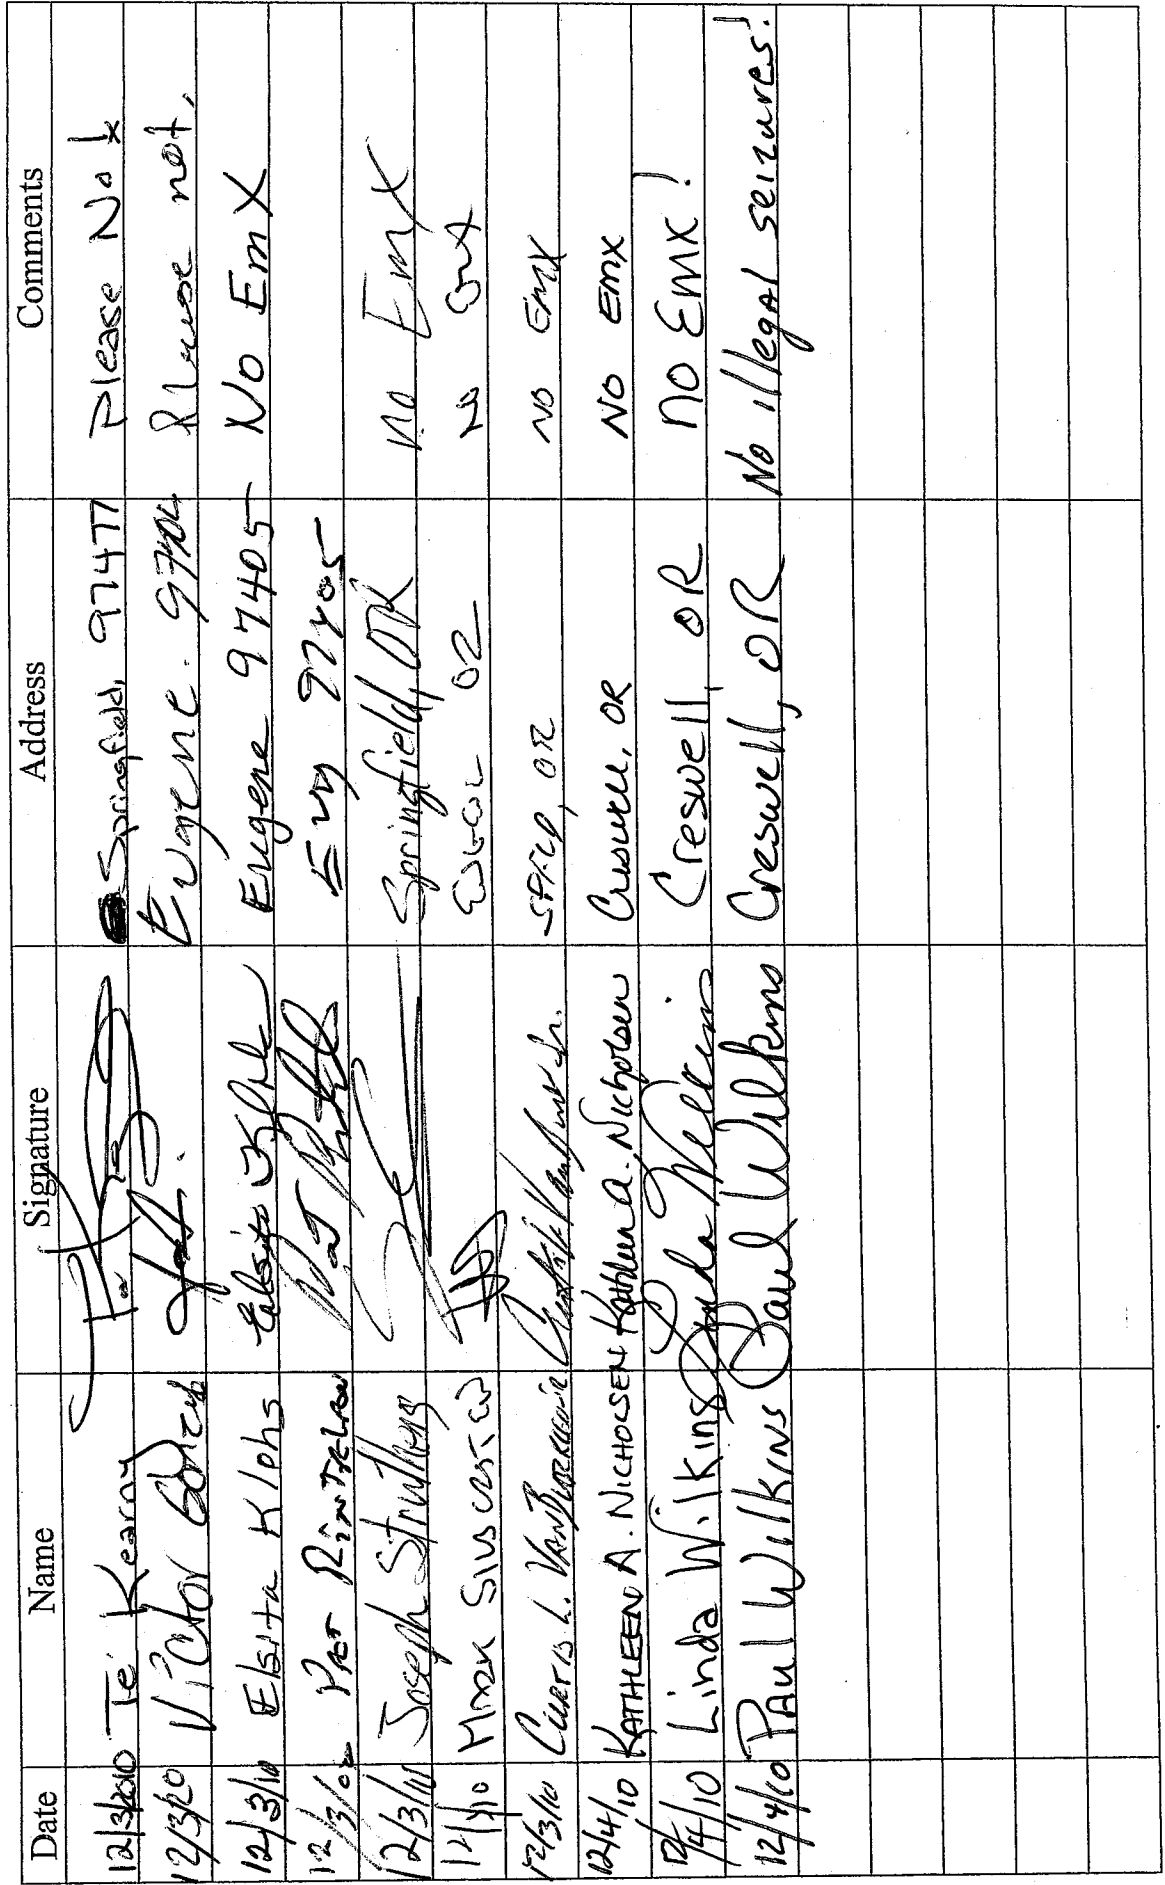 Date Name Signature Address Comments
12/3/2010 Te Kearny Springfield, 97477 Please Not
12/3/20 Victor Eugene. Please not.
12/3/10 Elsita Klohs Elsita Klohs Eugene 97405 No EmX
12/3/10 Pat Eug 97405
12/3/10 Joseph Struthers Springfield, OR no EmX
12/3/10 OR No EmX
12/3/10 Curtis L. SPFLD, OR NO EMX
12/4/10 KATHLEEN A. NICHOLSEN Kathleen A. Nicholsen Creswell, OR NO EMX
12/4/10 Linda Wilkins Linda Wilkins Creswell, OR NO EMX!
12/4/10 PAUL WILKINS Paul Wilkins Creswell, OR No illegal seizures!